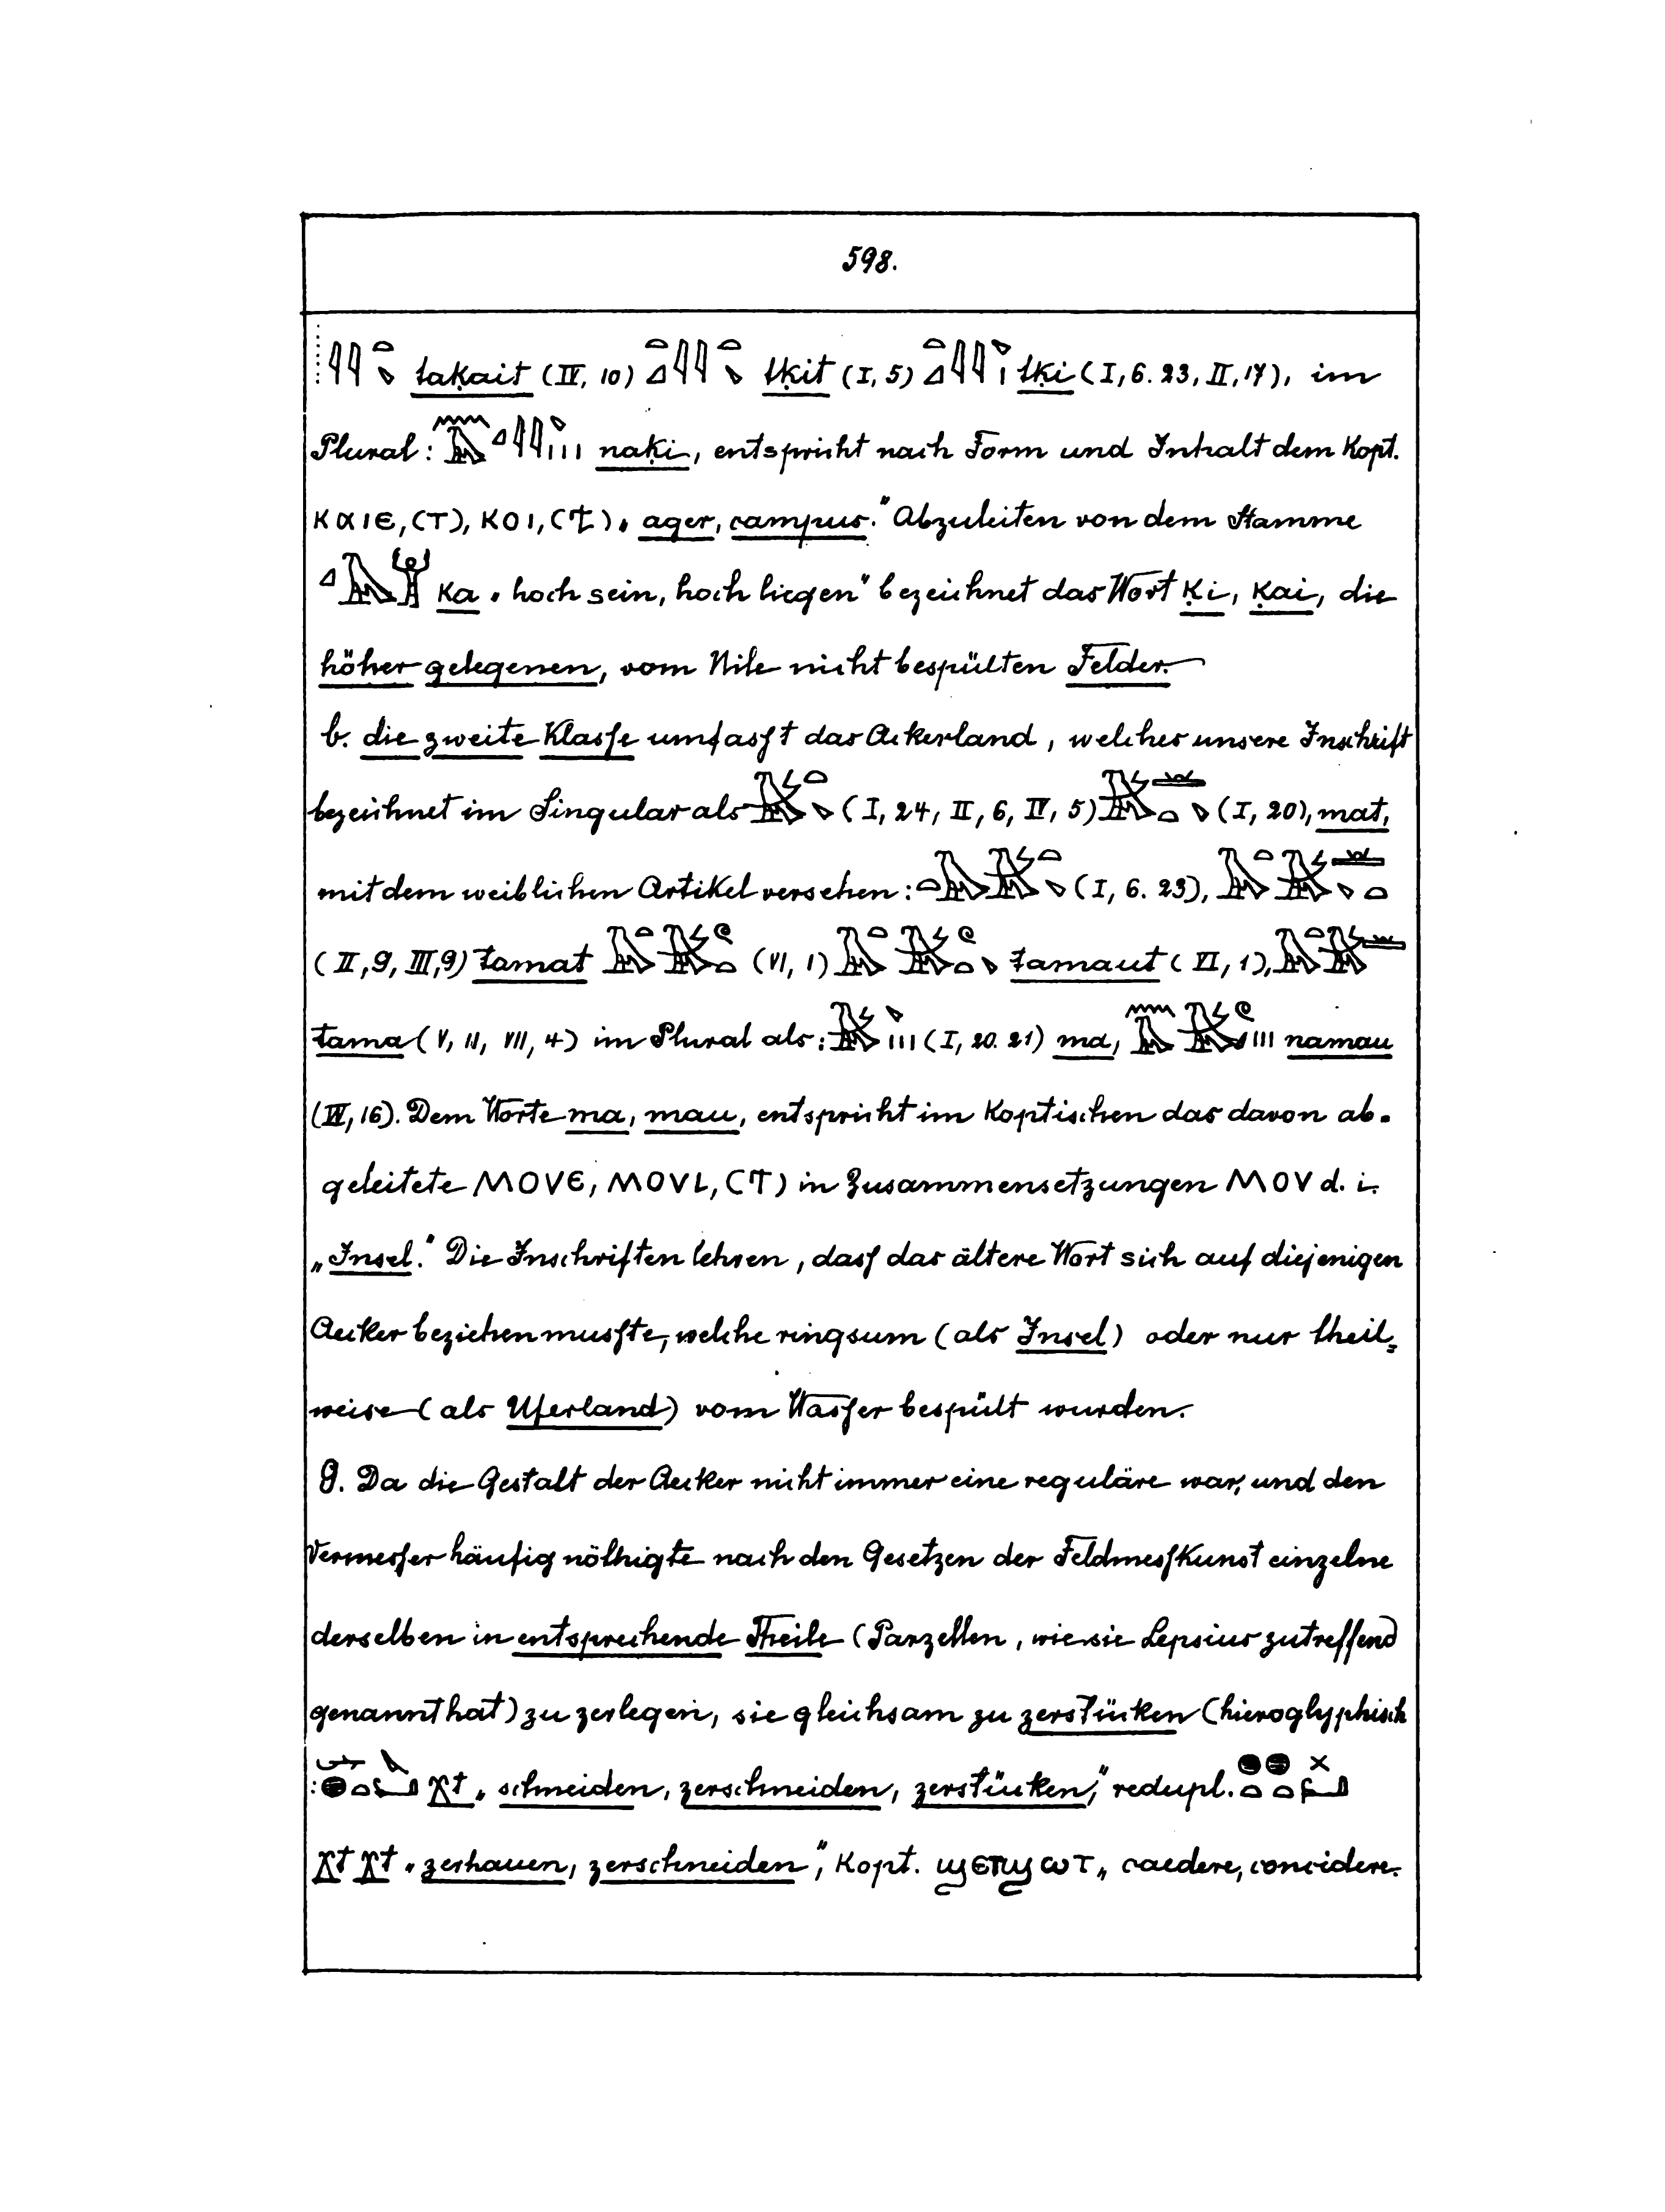 598.
takait (IV, 10) tkit (I, 5) tki (I, 6. 23, II, 17), im
Plural: naki, entspricht nach Form und Inhalt dem Kopt.
ⲕⲁⲓⲉ, (ⲧ), ⲕⲟⲓ, (ϯ) „ager, campus.“ Abzuleiten von dem Stamme
ḳa „hoch sein, hoch liegen“ bezeichnet das Wort ḳi, ḳai, die
höher gelegenen, vom Nile nicht bespülten Felder.
b. die zweite Klasse umfasst das Ackerland, welches unsere Inschrift
bezeichnet im Singular als (I, 24, II, 6, IV, 5) (I, 20), mat,
mit dem weiblichen Artikel versehen: (I, 6. 23),
(II, 9, III, 9) tamat (VI, 1) tamaut (VI, 1),
tama (V, 11, VII, 4) im Plural als: (I, 20. 21) ma, namau
(IV, 16). Dem Worte ma, mau, entspricht im Koptischen das davon ab-
geleitete ⲙⲟⲩⲉ, ⲙⲟⲩⲓ, (ⲧ) in Zusammensetzungen ⲙⲟⲩ d. i.
„Insel.“ Die Inschriften lehren, dass das ältere Wort sich auf diejenigen
Aecker beziehen musste, welche ringsum (als Insel) oder nur theil-
weise (als Uferland) vom Wasser bespült wurden.
9. Da die Gestalt der Aecker nicht immer eine reguläre war, und den
Vermesser häufig nöthigte nach den Gesetzen der Feldmesskunst einzelne
derselben in entsprechende Theile (Parzellen, wie sie Lepsius zutreffend
genannt hat) zu zerlegen, sie gleichsam zu zerstücken (hieroglyphisch
: χt „schneiden, zerschneiden, zerstücken,“ redupl.
χt χt „zerhauen, zerschneiden“, Kopt. ϣⲉⲧϣⲱⲧ „caedere, concidere.